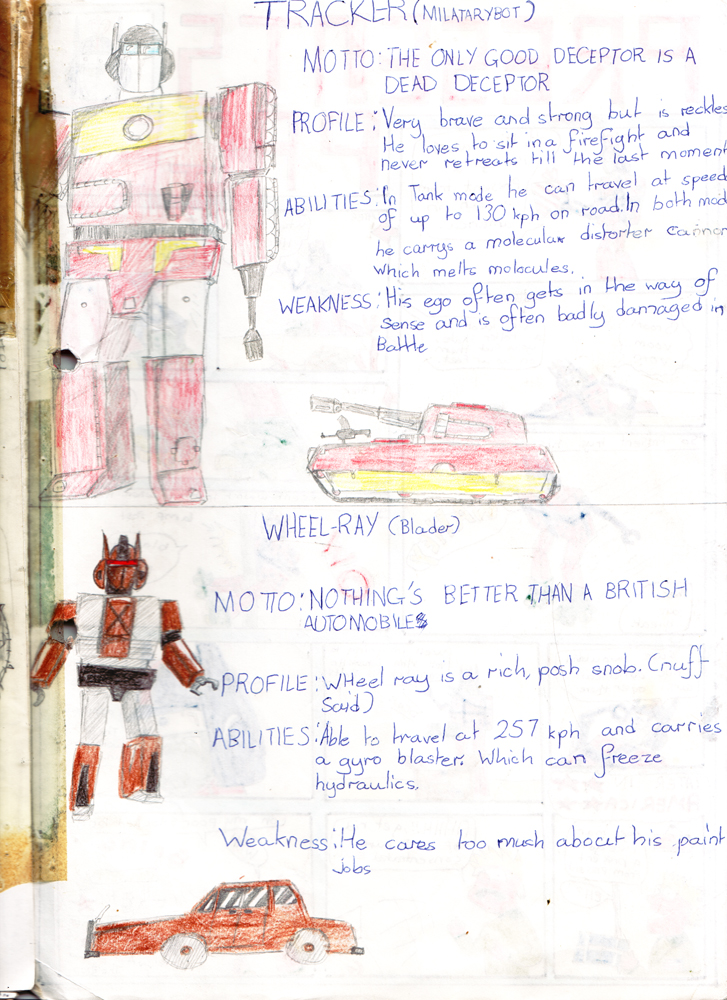 TRACKER (MILATARYBOT)
MOTTO: THE ONLY GOOD DECEPTOR IS A
DEAD DECEPTOR
PROFILE: Very brave and strong but is reckles
He loves to sit in a firefight and
never retreats till the last moment
ABILITIES: In Tank mode he can travel at speed
of up to 130 kph on road. In both mod
he carrys a molecular distorter cannon
which melts molocules.
WEAKNESS: His ego often gets in the way of
sense and is often badly damaged in
Battle
WHEEL-RAY (Blader)
MOTTO: NOTHING'S BETTER THAN A BRITISH
AUTOMOBILE
PROFILE: Wheel ray is a rich, posh snob. (nuff
Said)
ABILITIES: Able to travel at 257 kph and carries
a gyro blaster. Which can freeze
hydraulics.
Weakness: He cares too much about his paint
jobs